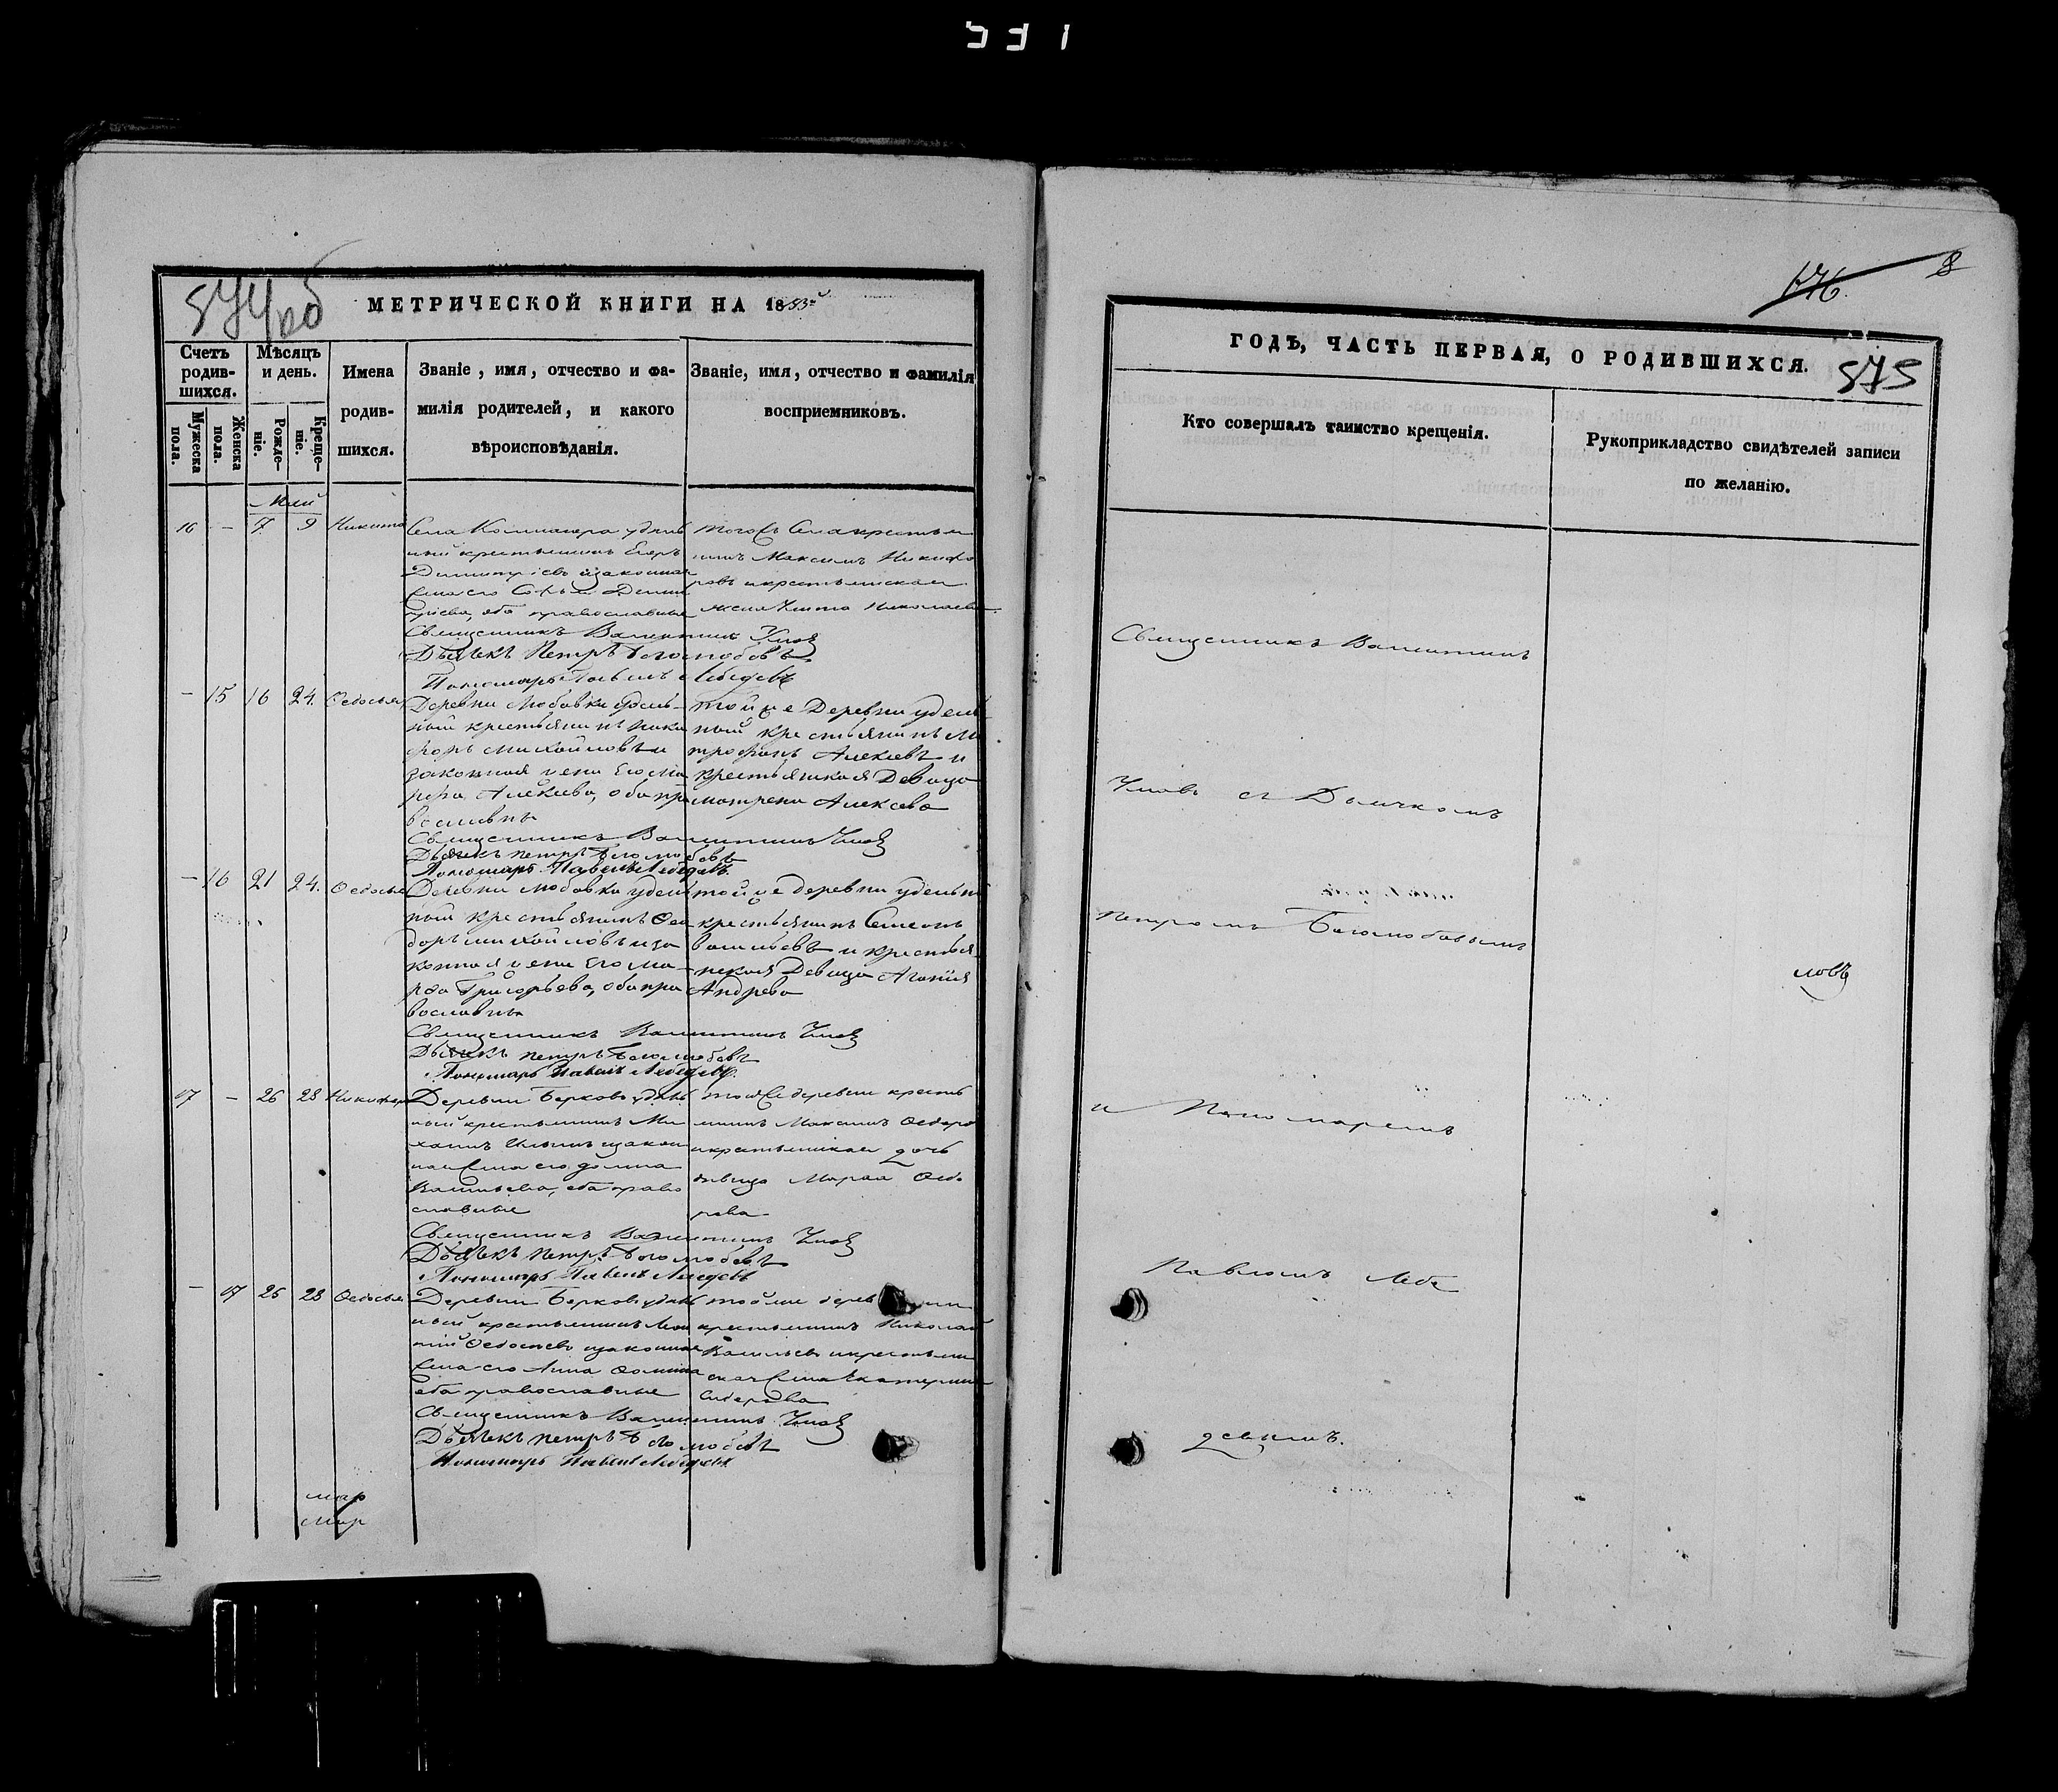 531
874об
МЕТРИЧЕСКОЙ КНИГИ НА 1853й
Счетъ родив-шихся.
Мужеска пола.
Женска пола.
Мѣсяцъ и день.
Рожде-ніе.
Креще-ніе.
Имена родив-шихся.
Званіе, имя, отчество и фа-
милія родителей, и какого
вѣроисповѣданія.
Званіе, имя, отчество и фамилія
восприемниковъ.
Май
16 - 7 9 Никита
Села удѣль
ный крестьянинъ Егоръ
Димитріевъ изаконная
жена его Софья Дими
тріева, оба православные
тогожъ Села крестья
нинъ Максимъ Никифо
ровъ и крестьянская
жена Николаева
Священникъ Валентинъ Умовъ
Дьячекъ Петръ Боголюбовъ
Пономарь Павелъ Лебедевъ
- 15 16 24. Ѳедосья
Деревни Любовки удель-
ный крестьянинъ Ники
форъ Михайловъ и
законная жена Его Ма
рфа Алексева, оба пра
вославны
тойже Деревни удель
ный крестьянинъ Ми
трофанъ Алексевъ и
крестьянская Девица
матрена Алексева
Священникъ Валентинъ Умовъ
Дьячекъ петръ Боголюбовъ
Пономарь Павелъ Лебедевъ.
- 16 21 24. Ѳедосья
Деревни Любовки удель
ный крестьянинъ Ѳео
доръ михайловъ иза
конная жена Его ма-
рѳа Григорьева, оба пра
вославны
тойже деревни удельн
крестьянинъ Семенъ
васильевъ и крестья
нская Девица Агаѳія
Андрева
Священникъ Валентинъ Умовъ
Дьячекъ петръ Боголюбовъ
Пономарь Павелъ Лебедевъ.
17 - 26 28 Никифоръ
Деревни Берковъ удѣль
ный крестьянинъ Ми
хаилъ Ильинъ изакон
ная жена его Домна
Васильева, оба право
славные
тойже деревни кресть
янинъ Максимъ Ѳедоро
и крестьянская дочь
дѣвица Марѳа Ѳедо
рова
Священникъ Валентинъ Умовъ
Дьячекъ петръ Боголюбовъ
Пономарь Павелъ Лебедевъ
- 17 26 28 Ѳедосья
Деревни Берковъ удѣль
ный крестьянинъ
изаконная
жена его Анна Ѳомина
оба православные
тойже дерев
крестьянинъ Николай
Васильевъ и крестьян
ская жена Екатерина
Сидорова
Священникъ Валентинъ Умовъ
Дьячекъ петръ Боголюбовъ
Пономарь Павелъ Лебедевъ
676.
8
ГОДѢ, ЧАСТЬ ПЕРВАЯ, О РОДИВШИХСЯ.
875
Кто совершалъ таинство крещенія.
Рукоприкладство свидѣтелей записи
по желанію.
Священникъ Валентинъ
Умовъ съ Дьячкомъ
Петромъ Боголюбовымъ
ловъ
и Пономаремъ
Павломъ Лебе
девымъ.